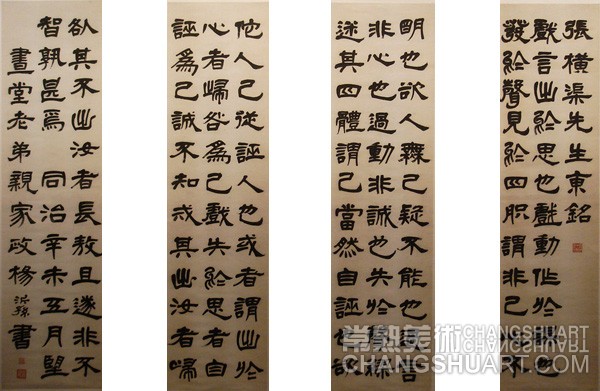 張橫渠先生東銘
戲言出於思也戲動作於謀也
發於聲見於四肢謂非己心不
明也欲人無己疑不能也過言
非心也過動非誠也失於聲繆
迷其四體謂己當然自誣也欲
他人己從誣人也或者謂出於
心者歸咎為己戲失於思者自
誣為己誠不知戒其出汝者歸
咎其不出汝者長敖且遂非不
智孰甚焉 同治辛未五月望
晝堂老弟親家政楊沂孫書
常熟美術 CHANGSHUART
CHANGSHUART.COM